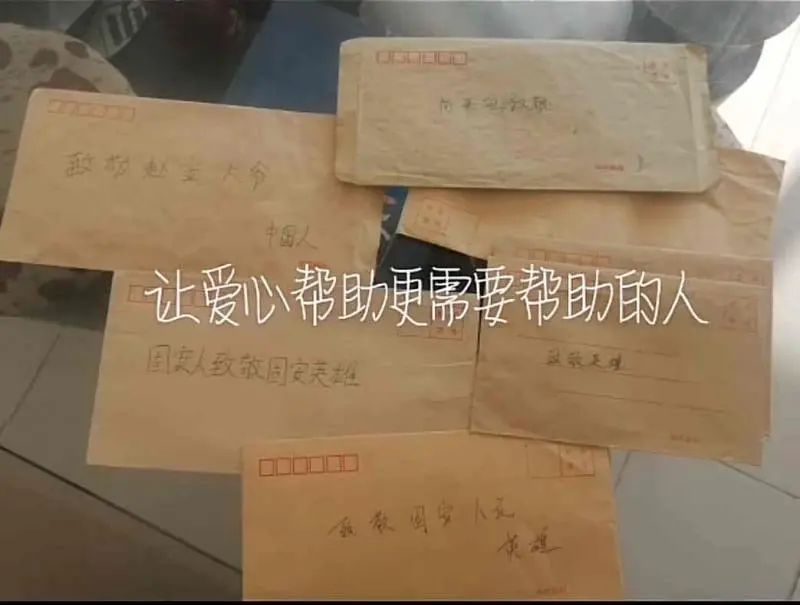 致敬赵宝大爷
中国人
让爱心帮助更需要帮助的人
固安人致敬固安英雄
致敬英雄
致敬固安人民
英雄